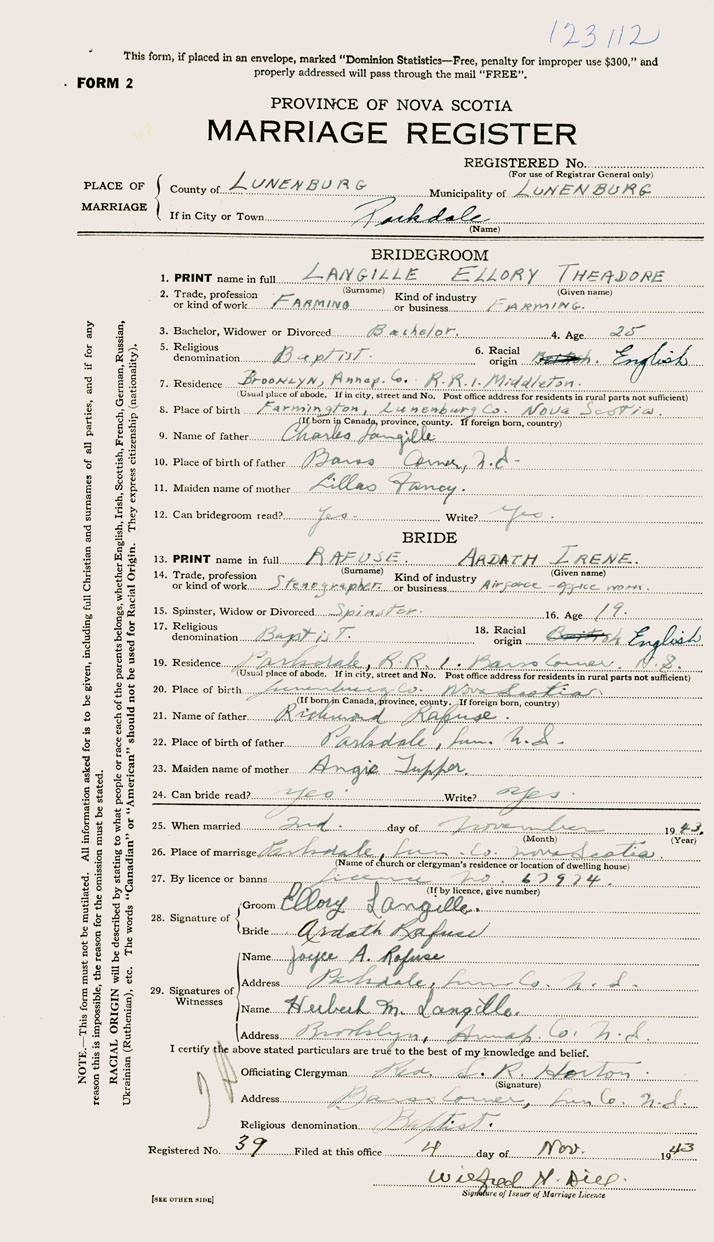 123112
This form, if placed in an envelope, marked "Dominion Statistics—Free, penalty for improper use $300," and
properly addressed will pass through the mail "FREE".
FORM 2
PROVINCE OF NOVA SCOTIA
MARRIAGE REGISTER
REGISTERED No.
(For use of Registrar General only)
PLACE OF MARRIAGE
County of LUNENBURG Municipality of LUNENBURG
If in City or Town Parkdale
(Name)
BRIDEGROOM
1. PRINT name in full LANGILLE ELLORY THEADORE
(Surname) (Given name)
2. Trade, profession or kind of work FARMING Kind of industry or business FARMING.
3. Bachelor, Widower or Divorced Bachelor. 4. Age 25
5. Religious denomination Baptist. 6. Racial origin English
7. Residence BROOKLYN, Annap. Co. R.R.1. Middleton.
(Usual place of abode. If in city, street and No. Post office address for residents in rural parts not sufficient)
8. Place of birth Farmington, Lunenburg Co. Nova Scotia.
(If born in Canada, province, county. If foreign born, country)
9. Name of father Charles Langille
10. Place of birth of father Barss Corner, N.S.
11. Maiden name of mother Lillas Fancy.
12. Can bridegroom read? Yes. Write? Yes.
BRIDE
13. PRINT name in full RAFUSE. ARDATH IRENE.
(Surname) (Given name)
14. Trade, profession or kind of work Stenographer Kind of industry or business Airforce - office work.
15. Spinster, Widow or Divorced Spinster. 16. Age 19.
17. Religious denomination Baptist. 18. Racial origin English
19. Residence Parkdale, R.R. 1. Barss Corner. N.S.
(Usual place of abode. If in city, street and No. Post office address for residents in rural parts not sufficient)
20. Place of birth Lunenburg Co. Nova Scotia
(If born in Canada, province, county. If foreign born, country)
21. Name of father Richmond Rafuse.
22. Place of birth of father Parkdale, Lun. N.S.
23. Maiden name of mother Angie Tupper.
24. Can bride read? Yes Write? Yes.
25. When married 2nd day of November 1943.
(Month) (Year)
26. Place of marriage Parkdale, Lun. Co. Nova Scotia.
(Name of church or clergyman's residence or location of dwelling house)
27. By licence or banns Licence No. 67974.
(If by licence, give number)
28. Signature of
Groom Ellory Langille.
Bride Ardath Rafuse
29. Signatures of Witnesses
Name Joyce A. Rafuse
Address Parkdale, Lun. Co. N.S.
Name Herbert M. Langille.
Address Brooklyn, Annap. Co. N.S.
I certify the above stated particulars are true to the best of my knowledge and belief.
Officiating Clergyman Horton.
(Signature)
Address Barss Corner, Lun Co. N.S.
Religious denomination Baptist.
Registered No. 39 Filed at this office 4 day of Nov. 1943
Wilfred N.
Signature of Issuer of Marriage Licence
[SEE OTHER SIDE]
NOTE.—This form must not be mutilated. All information asked for is to be given, including full Christian and surnames of all parties, and if for any
reason this is impossible, the reason for the omission must be stated.
RACIAL ORIGIN will be described by stating to what people or race each of the parents belongs, whether English, Irish, Scottish, French, German, Russian,
Ukrainian (Ruthenian), etc. The words "Canadian" or "American" should not be used for Racial Origin. They express citizenship (nationality).